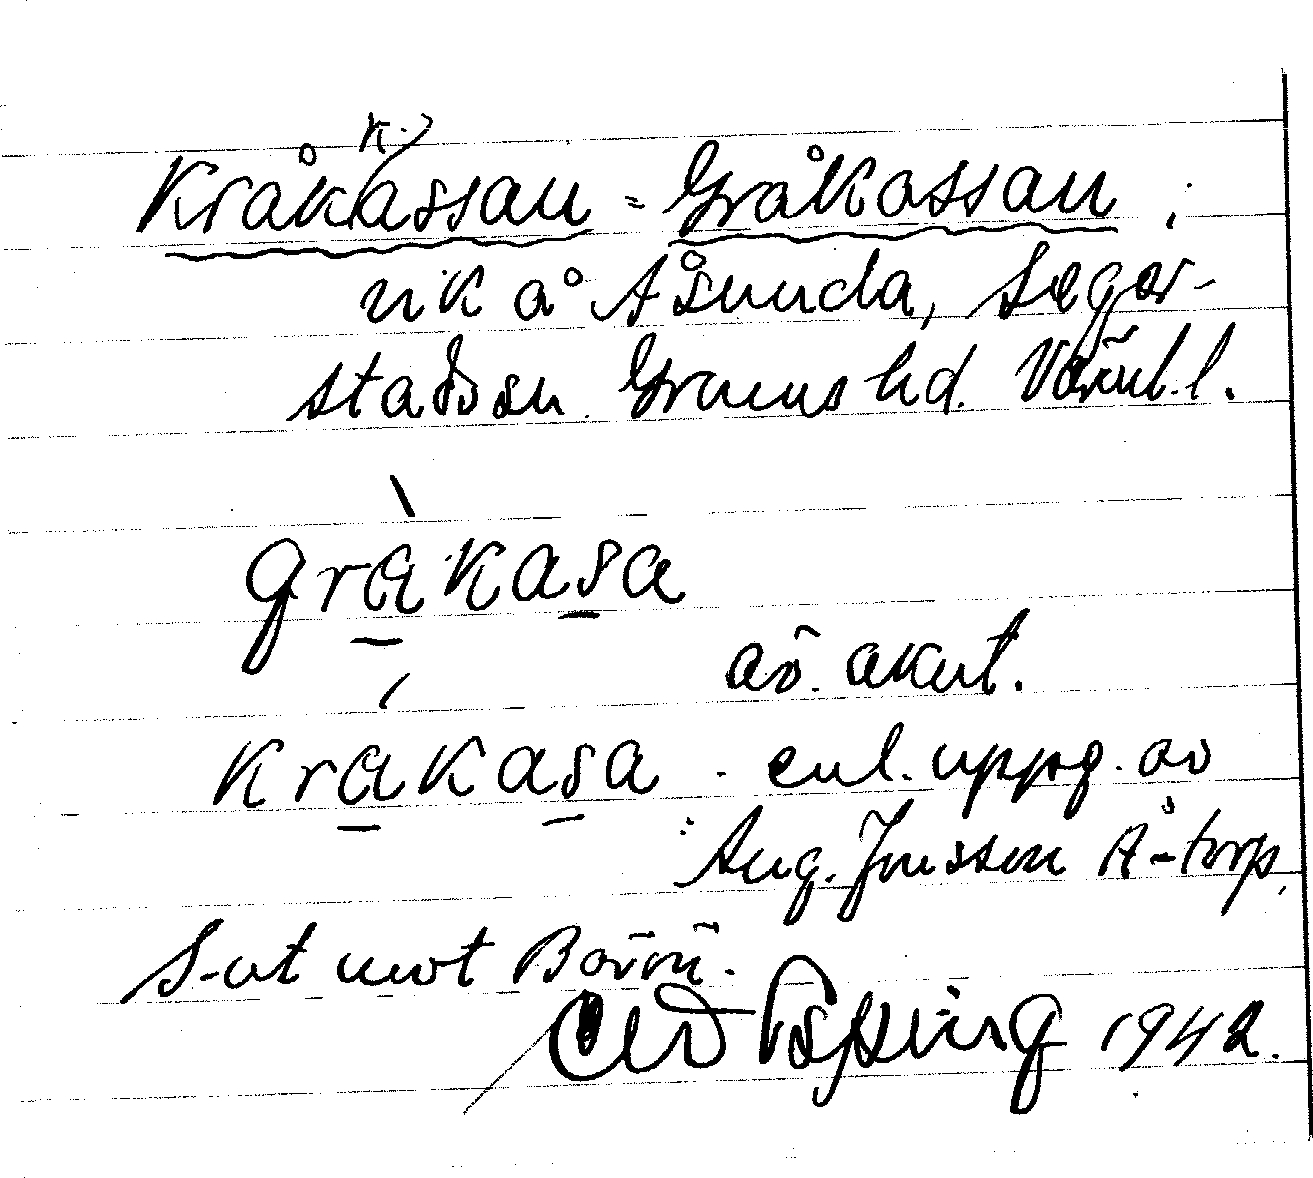 Kråkkassan = Gråkassan ;
vik å Åsunda, Seger-
stads sn. Grums hd. Värml. l.
gràkasa
av. akut.
krákasa . enl. uppg. av
Aug. Jonsson Å-torp,
S-ut mot Borön.
1942.